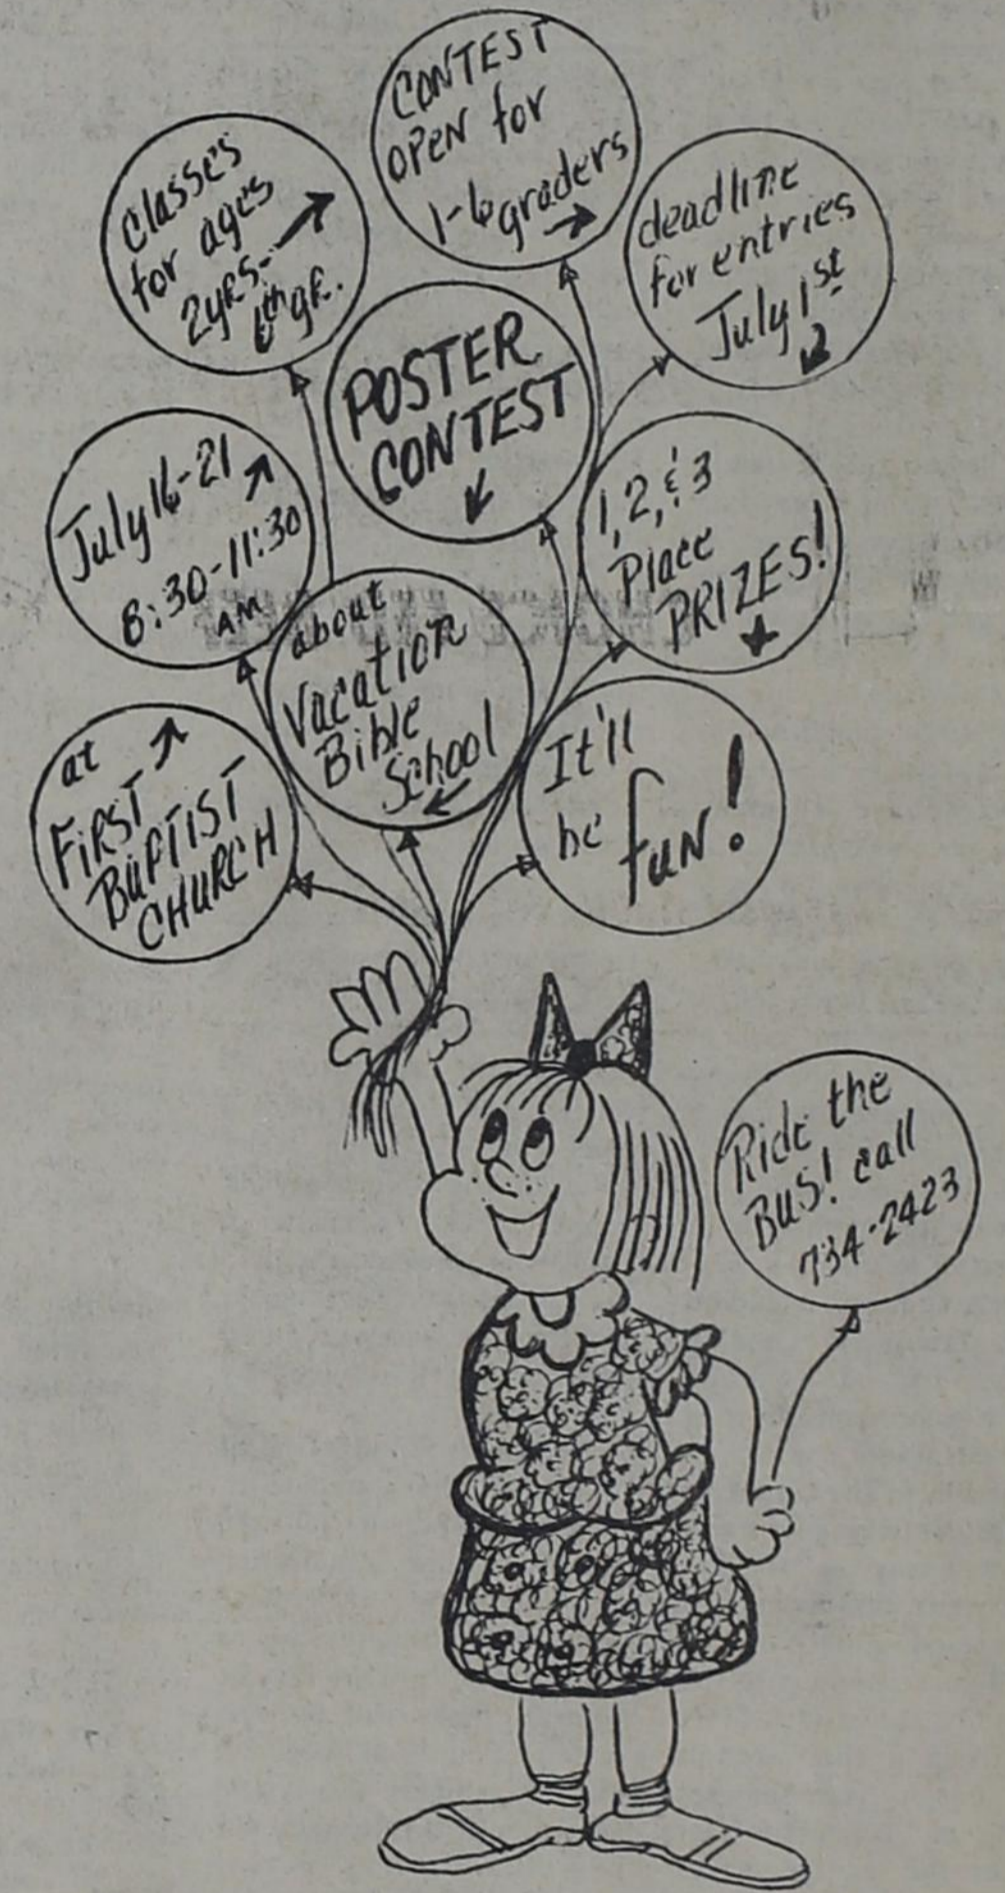 POSTER
CONTEST
about
Vacation
Bible
School
at
FiRST
BAPTIST
CHURCH
July 16-21
8:30-11:30
AM
Classes
for ages
2yrs-
6th gr.
CONTEST
OPEN for
1-6 graders
deadline
for entries
July 1st
1, 2, & 3
Place
PRIZES!
It'll
be fun!
Ride the
BUS! call
734-2423